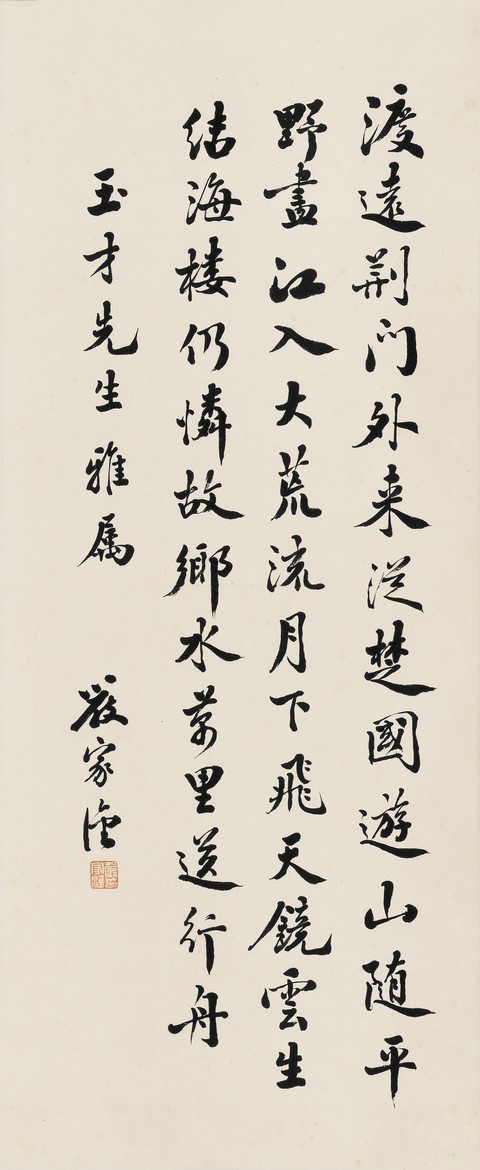 渡遠荆门外来従楚國遊山随平
野盡江入大荒流月下飛天鏡雲生
结海楼仍憐故鄉水萬里送行舟
玉才先生雅属
嚴家淦